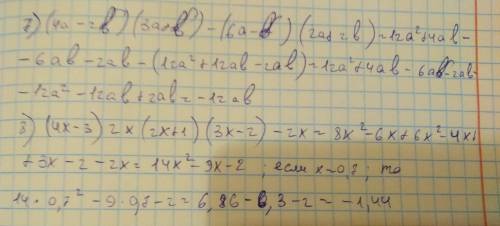 7) (4a - 2b) (3a+b) - (6a-b) (2a+2b) = 12a²+4ab -
- 6ab - 2ab - (12a²+12ab-2ab) = 12a²+4ab - 6ab - 2ab -
- 12a² - 12ab + 2ab = - 12ab
8) (4x-3) 2x (2x+1) (3x-2) - 2x = 8x² - 6x + 6x² - 4x+
+ 3x - 2 - 2x = 14x² - 9x - 2 ; если x=0,7 ; то
14 · 0,7² - 9 · 0,7 - 2 = 6,86 - 6,3 - 2 = - 1,44